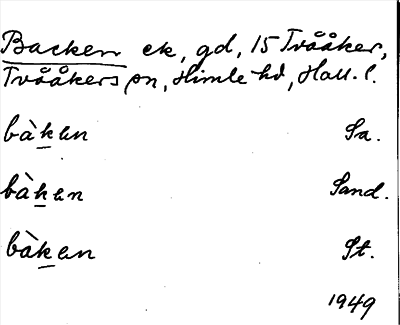 Backen ek, gd, 15 Tvååker,
Tvååkers sn, Himle hd, Hall. l.
bàken Sa.
bàken Sand.
bàken St.
1949